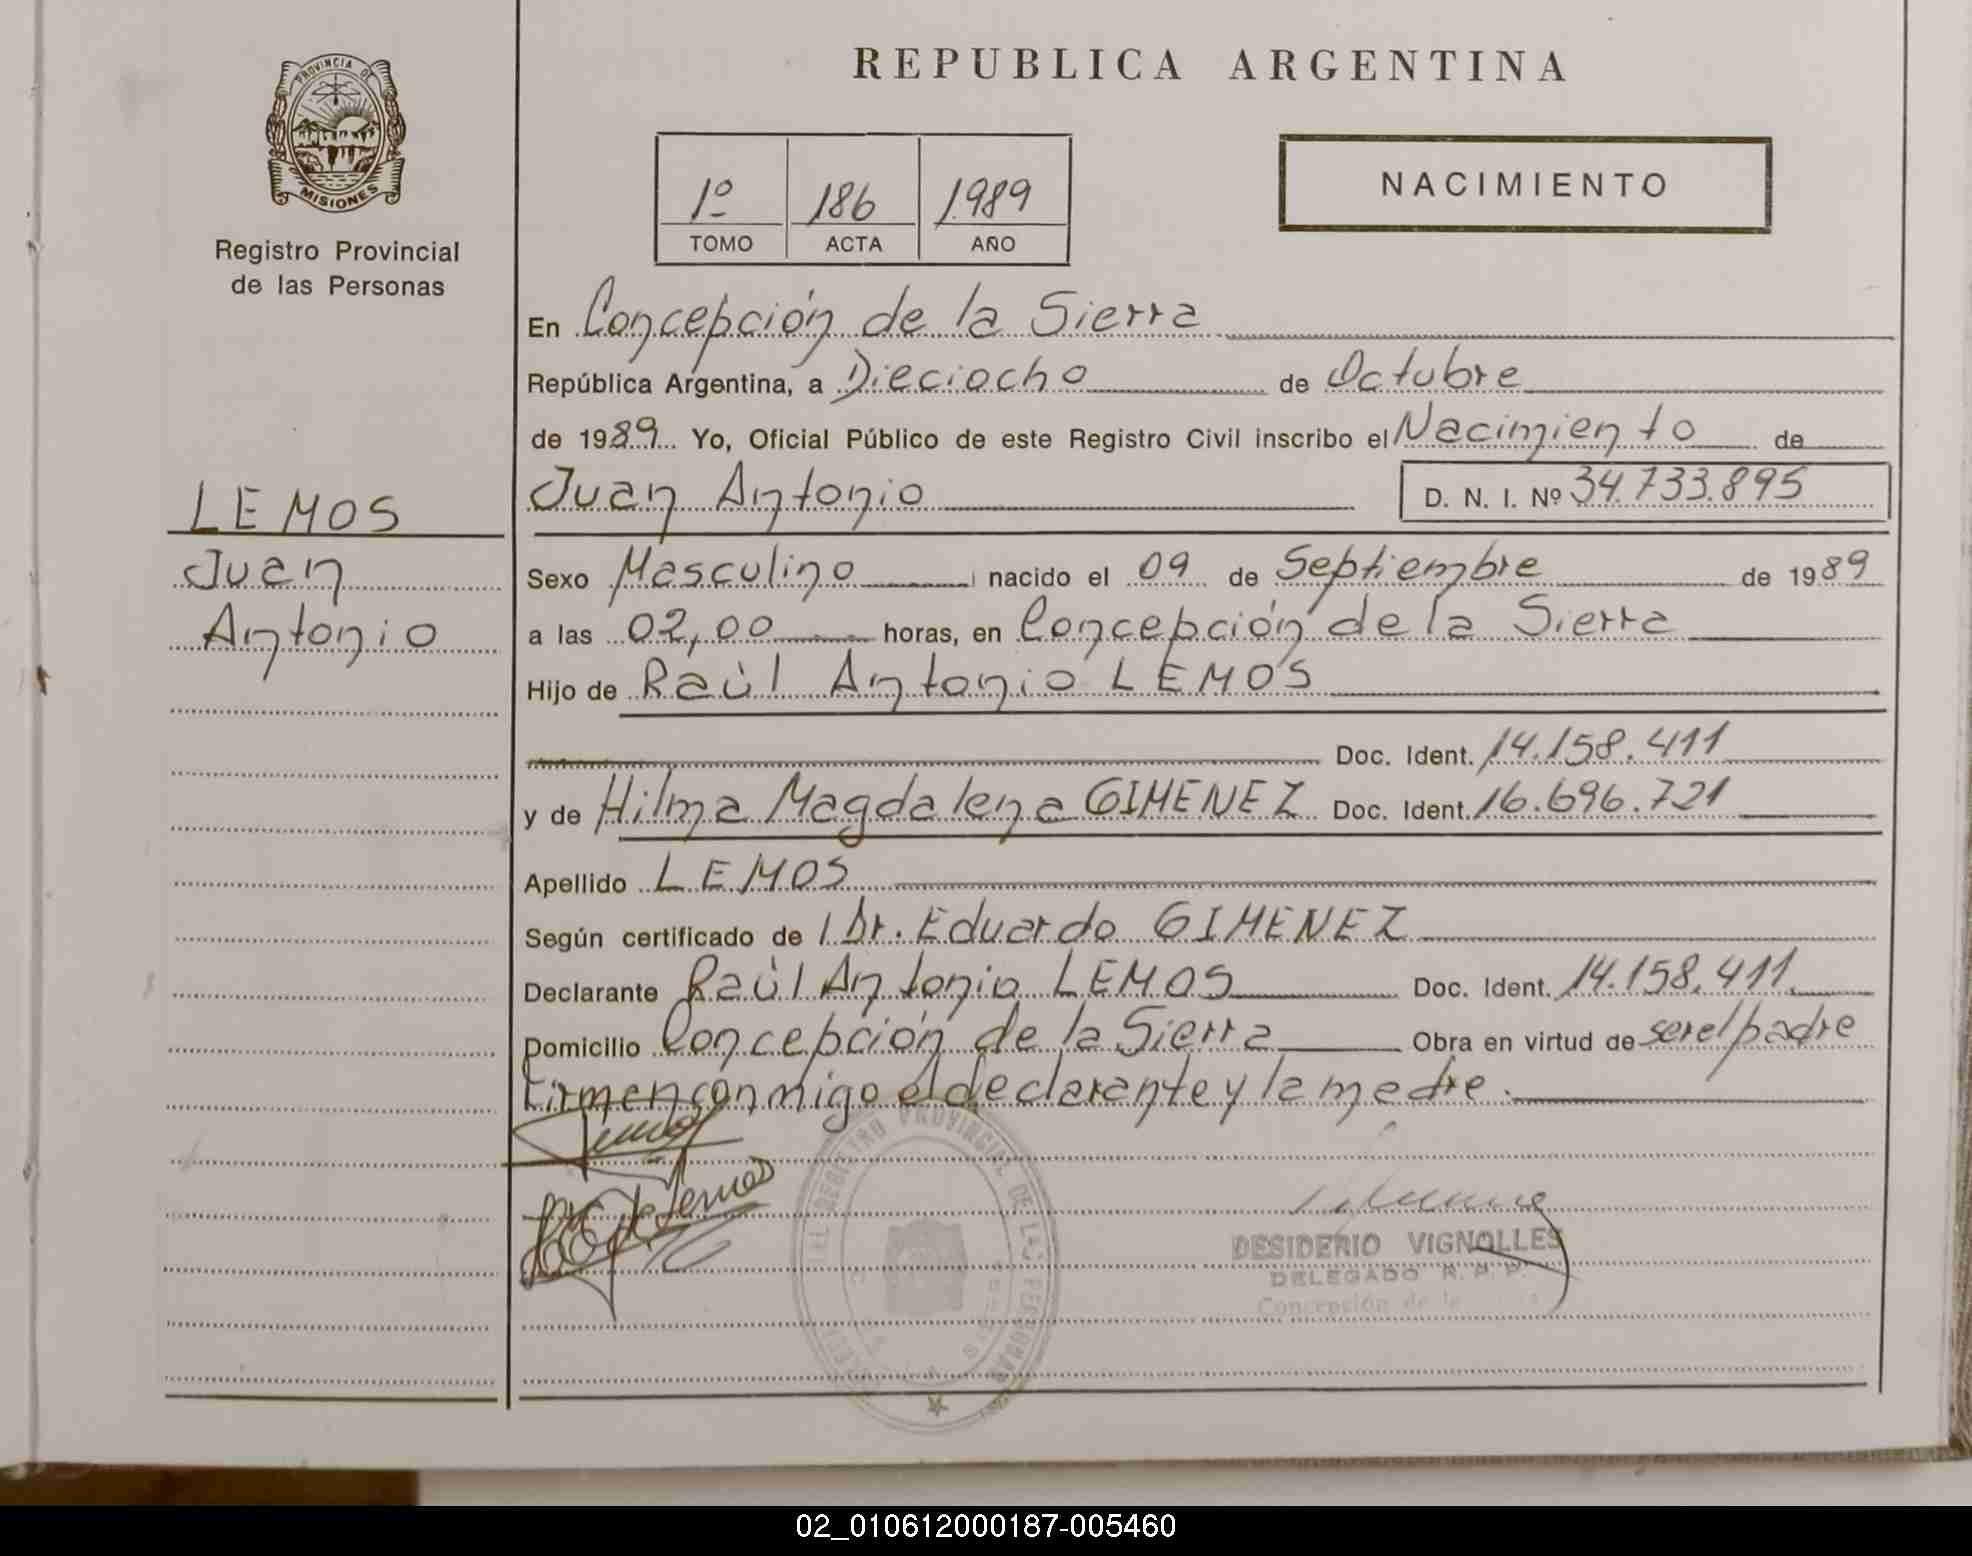 PROVINCIA DE
MISIONES
Registro Provincial
de las Personas
LEMOS
Juan
Antonio
REPUBLICA ARGENTINA
1º 186 1989
TOMO ACTA AÑO
NACIMIENTO
En Concepción de la Sierra
República Argentina, a Dieciocho de Octubre
de 1989 Yo, Oficial Público de este Registro Civil inscribo el Nacimiento de
Juan Antonio D. N. I. Nº 34.733.895
Sexo Masculino nacido el 09 de Septiembre de 1989
a las 02,00 horas, en Concepción de la Sierra
Hijo de Raúl Antonio LEMOS
Doc. Ident. 14.158.411
y de Hilma Magdalena GIMENEZ Doc. Ident. 16.696.721
Apellido LEMOS
Según certificado de Dr. Eduardo GIMENEZ
Declarante Raúl Antonio LEMOS Doc. Ident. 14.158.411
Domicilio Concepción de la Sierra Obra en virtud de ser el padre
Firman conmigo el declarante y la madre.
Lemos
de Lemos
REGISTRO PROVINCIAL DE LAS PERSONAS
DESIDERIO VIGNOLLES
DELEGADO R. P. P.
Concepción de la
02_010612000187-005460